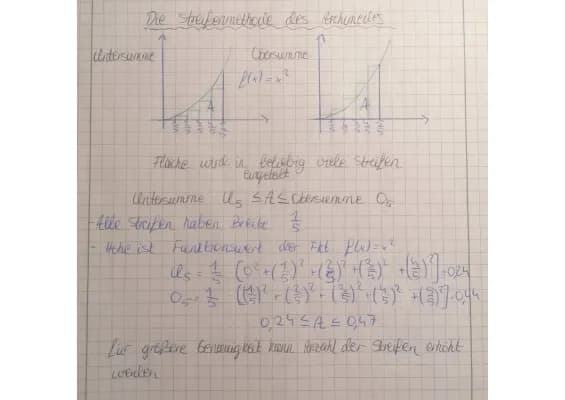 Die Streifenmethode des Archimedes
Untersumme Obersumme
f(x) = x²
A A
1/5 2/5 3/5 4/5 5/5 1/5 2/5 3/5 4/5 5/5
Fläche wird in beliebig viele Streifen
eingeteilt
Untersumme U₅ ≤ A ≤ Obersumme O₅
- Alle Streifen haben Breite 1/5
- Höhe ist Funktionswert der Fkt f(x) = x²
U₅ = 1/5 [0² + (1/5)² + (2/5)² + (3/5)² + (4/5)²] = 0,24
O₅ = 1/5 [(1/5)² + (2/5)² + (3/5)² + (4/5)² + (5/5)²] = 0,44
0,24 ≤ A ≤ 0,47
Für größere Genauigkeit kann Anzahl der Streifen erhöht
werden